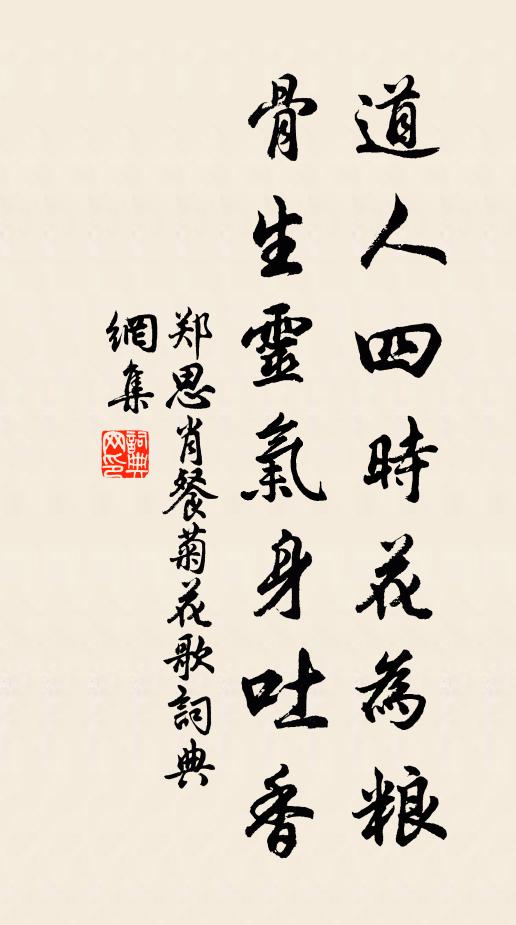 道人四時花為粮
骨生靈氣身吐香
郑思肖餐菊花歌詞典
網集
詞典网印